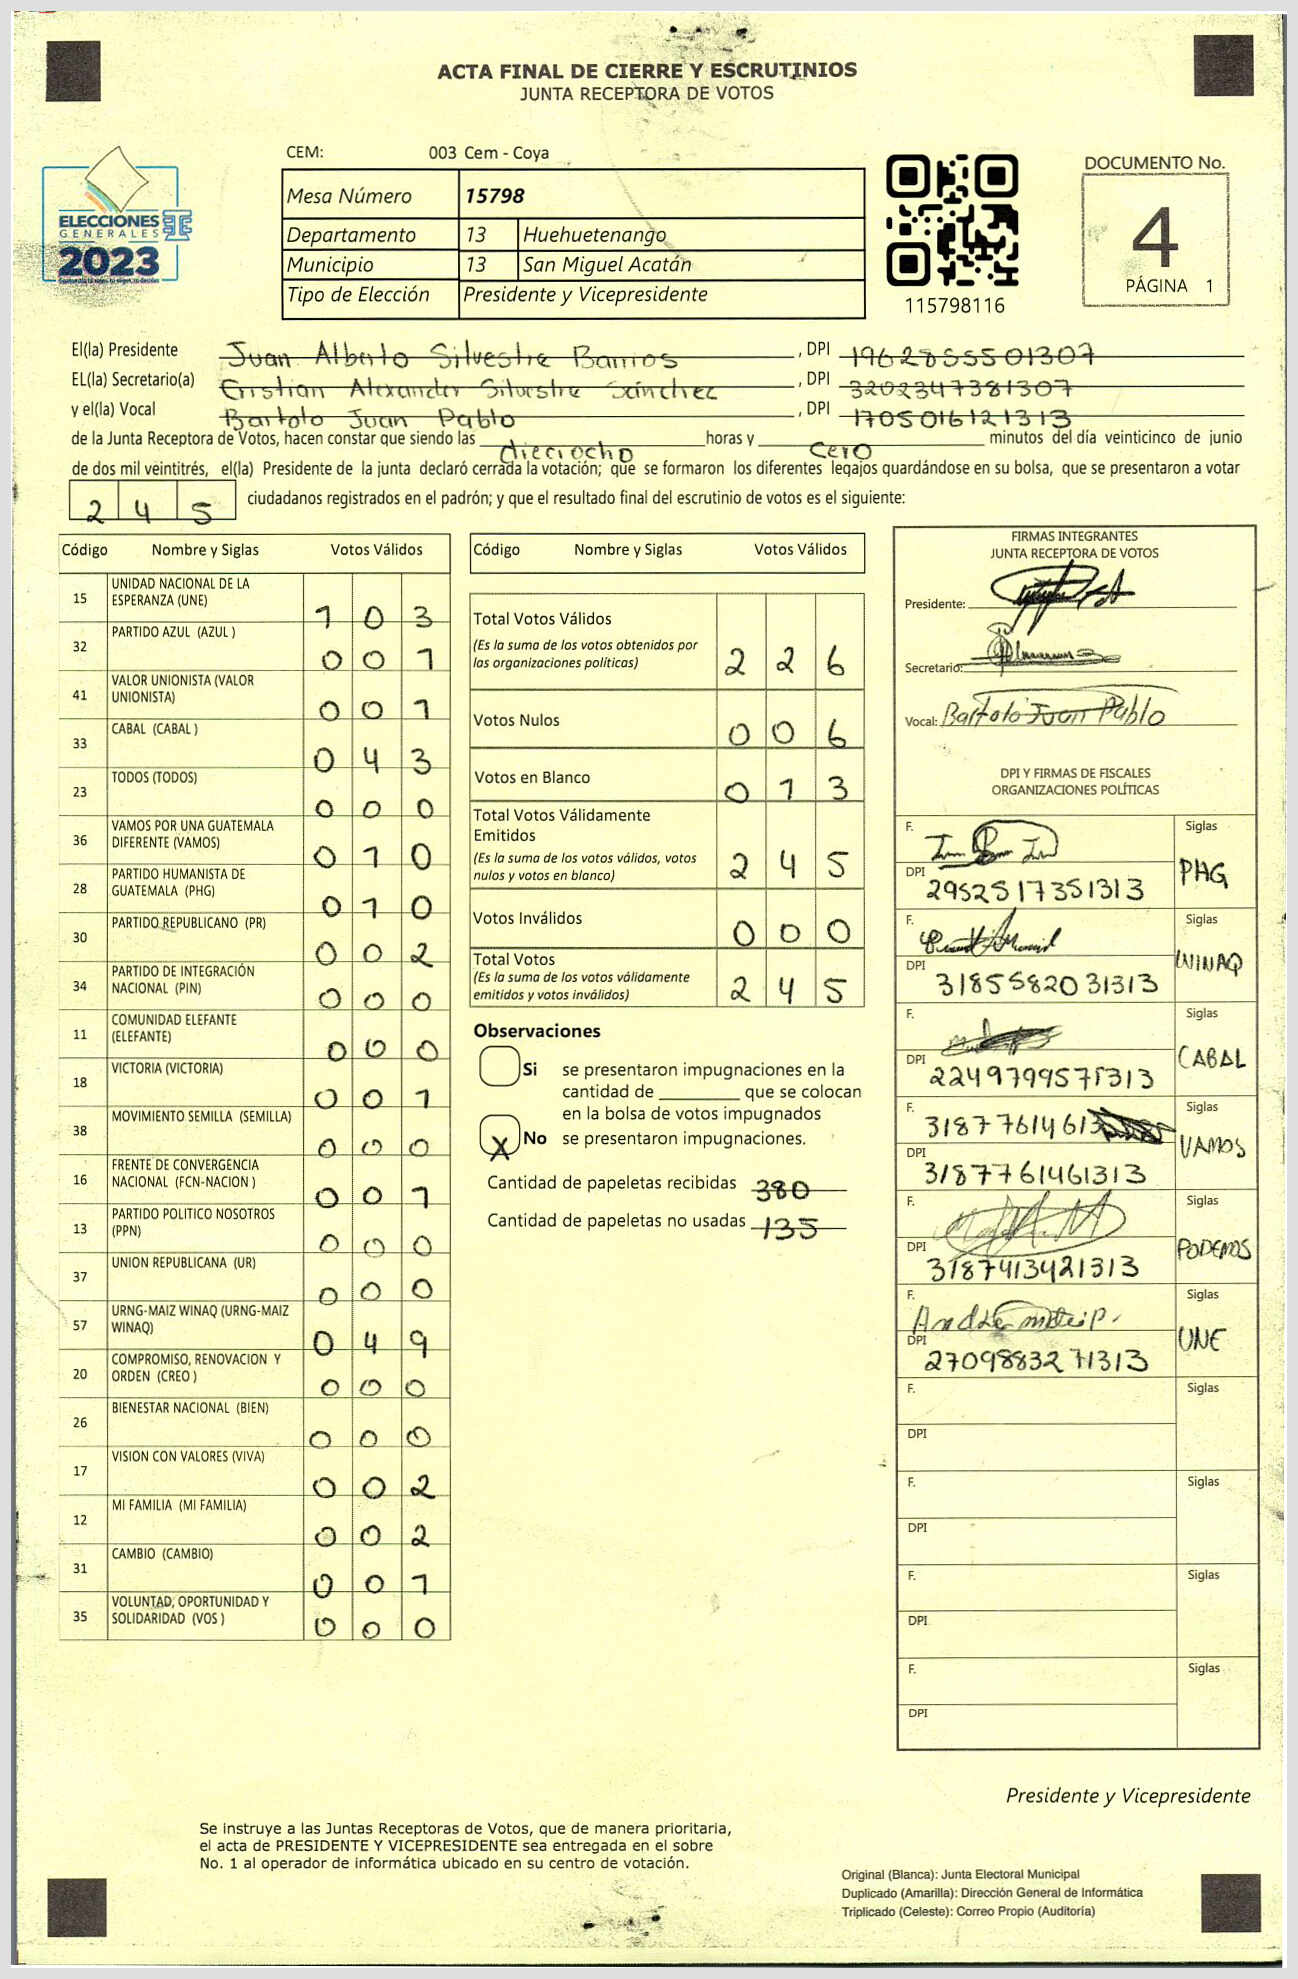 ACTA FINAL DE CIERRE Y ESCRUTINIOS
JUNTA RECEPTORA DE VOTOS
ELECCIONES
GENERALES
2023
CEM: 003 Cem - Coya
Mesa Número 15798
Departamento 13 Huehuetenango
Municipio 13 San Miguel Acatán
Tipo de Elección Presidente y Vicepresidente
115798116
DOCUMENTO No.
4
PÁGINA 1
El(la) Presidente Juan Alberto Silvestre Barrios, DPI 1962855501307
EL(la) Secretario(a) Cristian Alexander Silvestre Sánchez, DPI 3202347381307
y el(la) Vocal Bartolo Juan Pablo, DPI 1705016121313
de la Junta Receptora de Votos, hacen constar que siendo las dieciocho horas y cero minutos del día veinticinco de junio
de dos mil veintitrés, el(la) Presidente de la junta declaró cerrada la votación; que se formaron los diferentes legajos guardándose en su bolsa, que se presentaron a votar
245 ciudadanos registrados en el padrón; y que el resultado final del escrutinio de votos es el siguiente:
Código Nombre y Siglas Votos Válidos
15 UNIDAD NACIONAL DE LA ESPERANZA (UNE) 103
32 PARTIDO AZUL (AZUL ) 001
41 VALOR UNIONISTA (VALOR UNIONISTA) 001
33 CABAL (CABAL ) 043
23 TODOS (TODOS) 000
36 VAMOS POR UNA GUATEMALA DIFERENTE (VAMOS) 010
28 PARTIDO HUMANISTA DE GUATEMALA (PHG) 010
30 PARTIDO REPUBLICANO (PR) 002
34 PARTIDO DE INTEGRACIÓN NACIONAL (PIN) 000
11 COMUNIDAD ELEFANTE (ELEFANTE) 000
18 VICTORIA (VICTORIA) 001
38 MOVIMIENTO SEMILLA (SEMILLA) 000
16 FRENTE DE CONVERGENCIA NACIONAL (FCN-NACION ) 001
13 PARTIDO POLITICO NOSOTROS (PPN) 000
37 UNION REPUBLICANA (UR) 000
57 URNG-MAIZ WINAQ (URNG-MAIZ WINAQ) 049
20 COMPROMISO, RENOVACION Y ORDEN (CREO ) 000
26 BIENESTAR NACIONAL (BIEN) 000
17 VISION CON VALORES (VIVA) 002
12 MI FAMILIA (MI FAMILIA) 002
31 CAMBIO (CAMBIO) 001
35 VOLUNTAD, OPORTUNIDAD Y SOLIDARIDAD (VOS ) 000
Código Nombre y Siglas Votos Válidos
Total Votos Válidos 226
(Es la suma de los votos obtenidos por
las organizaciones políticas)
Votos Nulos 006
Votos en Blanco 013
Total Votos Válidamente
Emitidos 245
(Es la suma de los votos válidos, votos
nulos y votos en blanco)
Votos Inválidos 000
Total Votos 245
(Es la suma de los votos válidamente
emitidos y votos inválidos)
Observaciones
Si se presentaron impugnaciones en la
cantidad de ________ que se colocan
en la bolsa de votos impugnados
X No se presentaron impugnaciones.
Cantidad de papeletas recibidas 380
Cantidad de papeletas no usadas 135
FIRMAS INTEGRANTES
JUNTA RECEPTORA DE VOTOS
Presidente:
Secretario:
Vocal: Bartolo Juan Pablo
DPI Y FIRMAS DE FISCALES
ORGANIZACIONES POLÍTICAS
F. Siglas
DPI 2952517351313 PHG
F. Siglas
DPI 3185582031313 WINAQ
F. Siglas
DPI 2249799571313 CABAL
F. 3187761461313 Siglas
DPI 3187761461313 VAMOS
F. Siglas
DPI 3187413421313 PODEMOS
F. Siglas
DPI 2709883271313 UNE
F. Siglas
DPI
F. Siglas
DPI
F. Siglas
DPI
F. Siglas
DPI
Presidente y Vicepresidente
Se instruye a las Juntas Receptoras de Votos, que de manera prioritaria,
el acta de PRESIDENTE Y VICEPRESIDENTE sea entregada en el sobre
No. 1 al operador de informática ubicado en su centro de votación.
Original (Blanca): Junta Electoral Municipal
Duplicado (Amarilla): Dirección General de Informática
Triplicado (Celeste): Correo Propio (Auditoría)